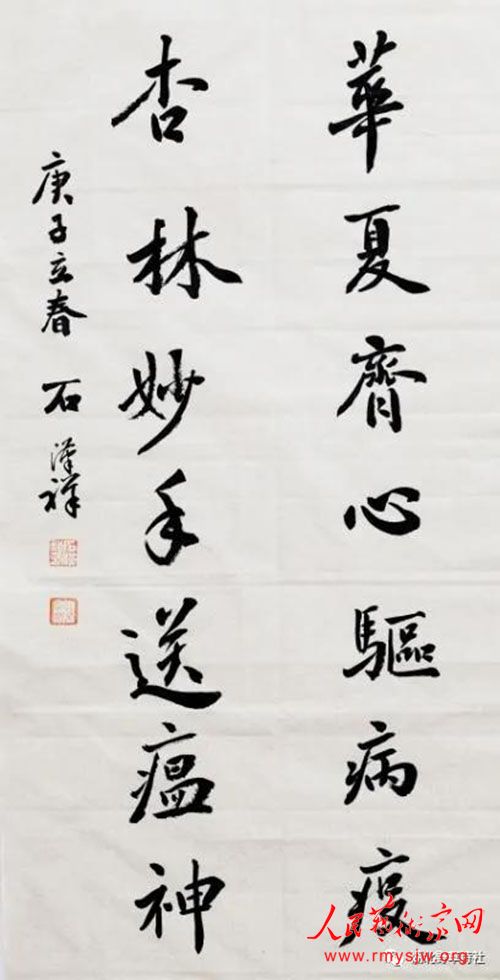 華夏齊心驅病疫
杏林妙手送瘟神
庚子立春 石漢祥
人民艺术家网
www.rmysjw.org.cn